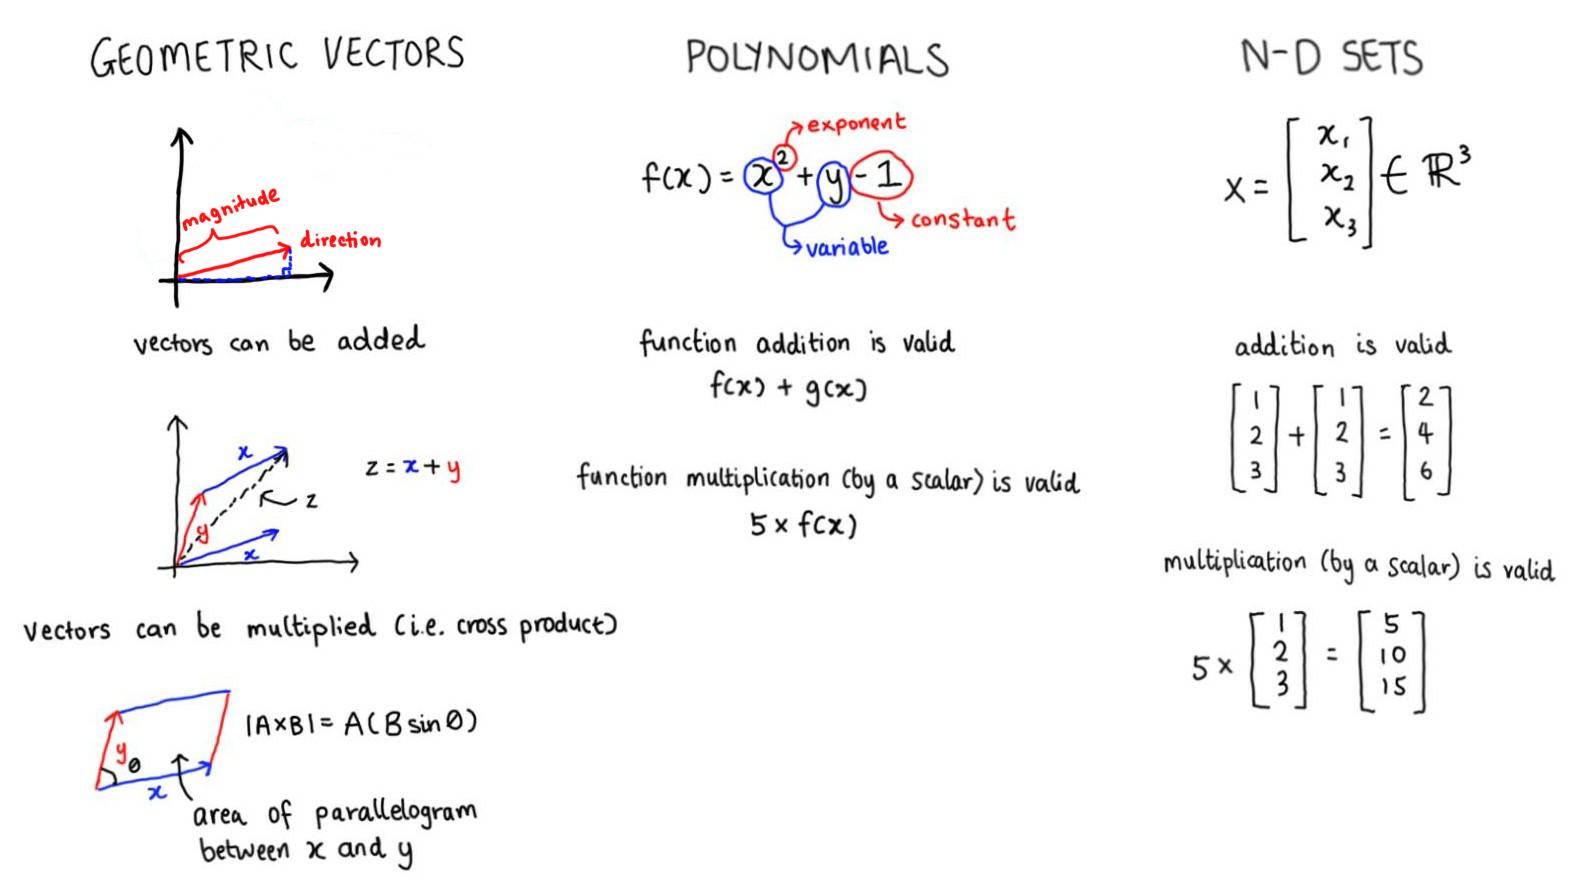 GEOMETRIC VECTORS
magnitude
direction
vectors can be added
x
y
z
x
z = x + y
vectors can be multiplied (i.e. cross product)
y
θ
x
|A×B| = A(B sin θ)
area of parallelogram
between x and y
POLYNOMIALS
exponent
f(x) = x² + y - 1
constant
variable
function addition is valid
f(x) + g(x)
function multiplication (by a scalar) is valid
5 × f(x)
N-D SETS
x₁
x = [ x₂ ] ∈ ℝ³
x₃
addition is valid
1 1 2
2 + 2 = 4
3 3 6
multiplication (by a scalar) is valid
1 5
5 × 2 = 10
3 15